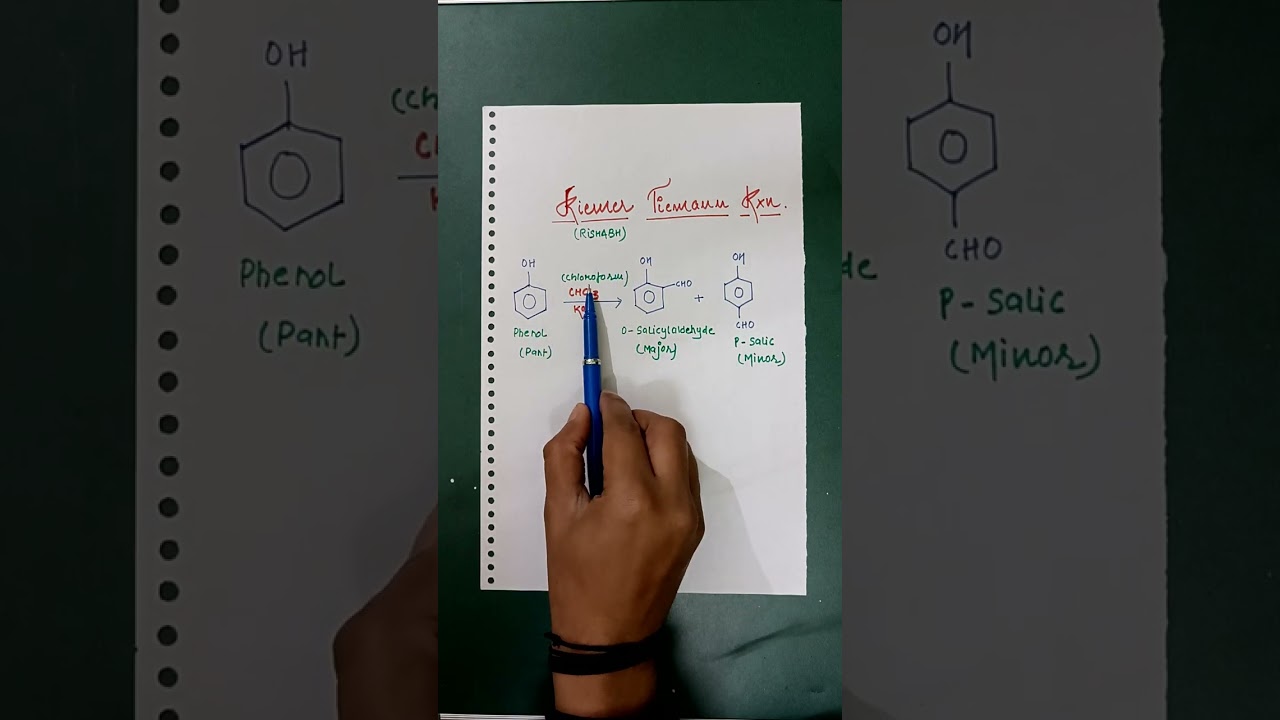 Riemer Tiemann Rxn.
(RiSHABH)
OH
(Chloroform)
OH
CHO
OH
+
Phenol
(Pant)
O-Salicylaldehyde
(Major)
CHO
P-Salic
(Minor)
OH
Phenol
(Pant)
OH
CHO
P-Salic
(Minor)